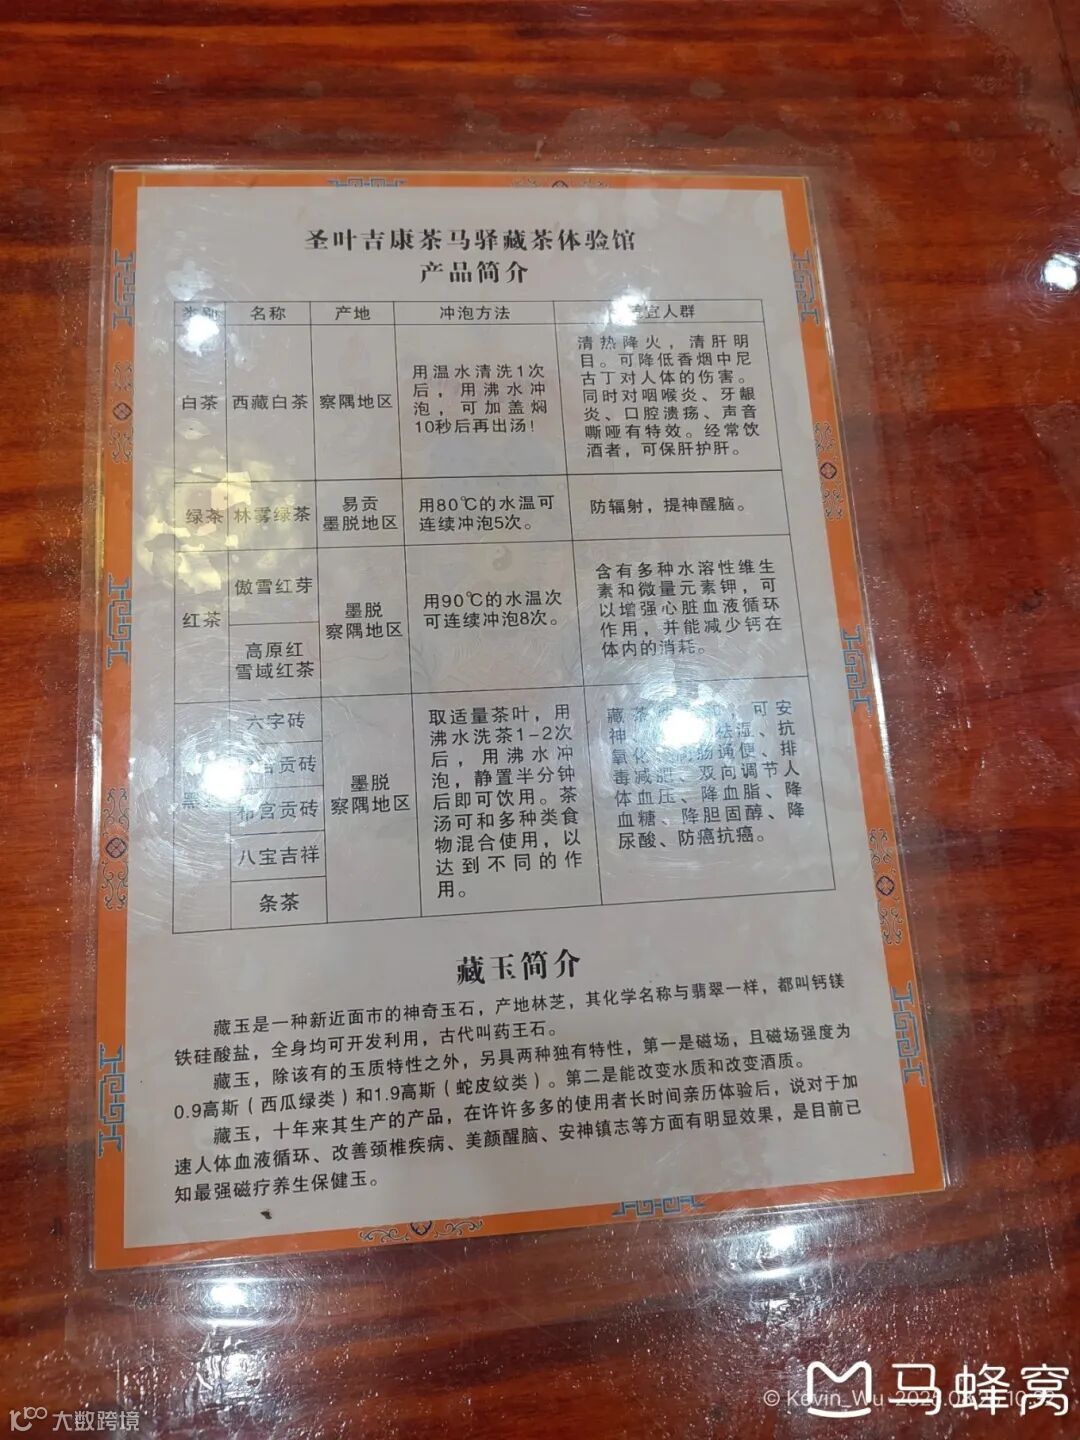 圣叶吉康茶马驿藏茶体验馆
产品简介
类别 名称 产地 冲泡方法 宜人群
白茶 西藏白茶 察隅地区
用温水清洗1次
后，用沸水冲
泡，可加盖焖
10秒后再出汤！
清热降火，清肝明
目。可降低香烟中尼
古丁对人体的伤害。
同时对咽喉炎、牙龈
炎、口腔溃疡、声音
嘶哑有特效。经常饮
酒者，可保肝护肝。
绿茶 林雾绿茶
易贡
墨脱地区
用80℃的水温可
连续冲泡5次。
防辐射，提神醒脑。
红茶
傲雪红芽
高原红
雪域红茶
墨脱
察隅地区
用90℃的水温次
可连续冲泡8次。
含有多种水溶性维生
素和微量元素钾，可
以增强心脏血液循环
作用，并能减少钙在
体内的消耗。
黑
六字砖
宫贡砖
布宫贡砖
八宝吉祥
条茶
墨脱
察隅地区
取适量茶叶，用
沸水洗茶1-2次
后，用沸水冲
泡，静置半分钟
后即可饮用。茶
汤可和多种类食
物混合使用，以
达到不同的作
用。
藏茶 ，可安
神 祛湿、抗
氧化 肠通便、排
毒减肥、双向调节人
体血压、降血脂、降
血糖、降胆固醇、降
尿酸、防癌抗癌。
藏玉简介
藏玉是一种新近面市的神奇玉石，产地林芝，其化学名称与翡翠一样，都叫钙镁
铁硅酸盐，全身均可开发利用，古代叫药王石。
藏玉，除该有的玉质特性之外，另具两种独有特性，第一是磁场，且磁场强度为
0.9高斯（西瓜绿类）和1.9高斯（蛇皮纹类）。第二是能改变水质和改变酒质。
藏玉，十年来其生产的产品，在许许多多的使用者长时间亲历体验后，说对于加
速人体血液循环、改善颈椎疾病、美颜醒脑、安神镇志等方面有明显效果，是目前已
知最强磁疗养生保健玉。
© Kevin_Wu
马蜂窝
大数跨境